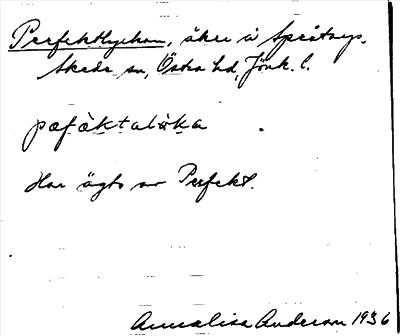 Perfektlyckan, åker i Språtorp.
Skede sn, Östra hd, Jönk. l.
pæfæ̀ktalø̀ka
Har ägts av Perfekt.
Annalisa Anderson 1936